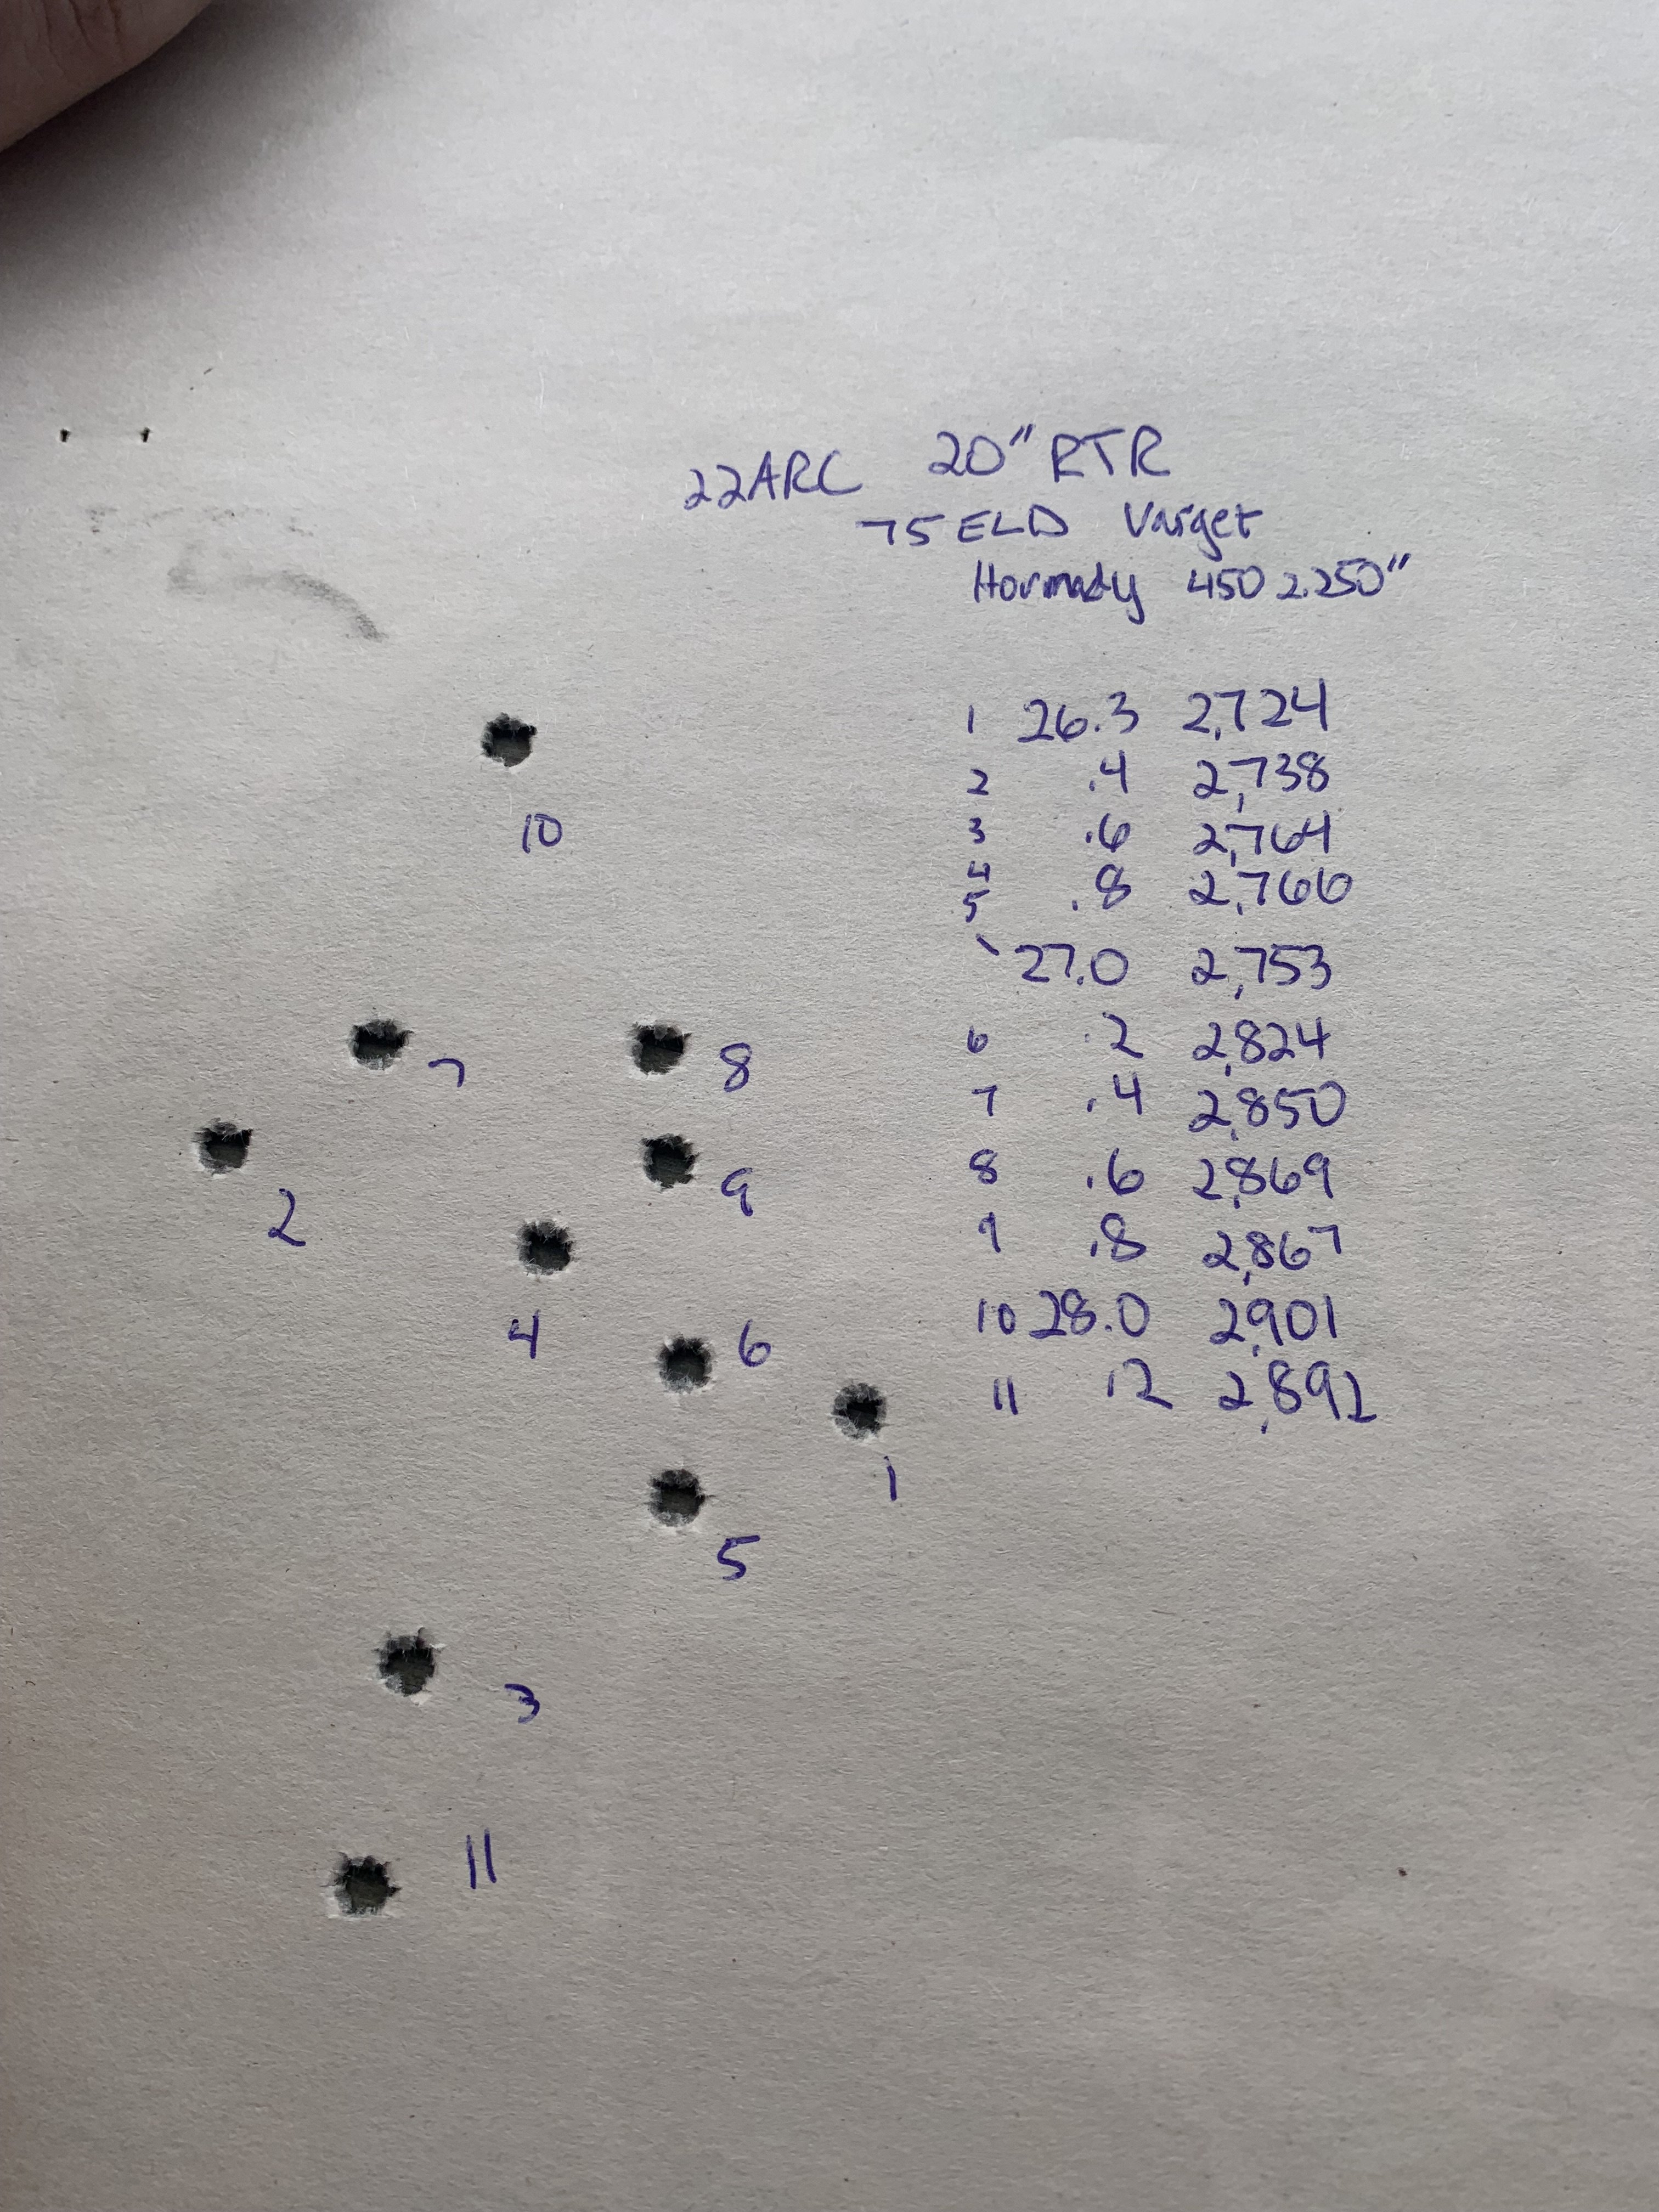 22ARC 20" RTR
75 ELD Varget
Hornady 450 2.250"
1 26.3 2,724
2 .4 2,738
3 .6 2,764
4
5 .8 2,766
27.0 2,753
6 .2 2,824
7 .4 2,850
8 .6 2,869
9 .8 2,867
10 28.0 2,901
11 .2 2,892
10
7
8
2
9
4
6
1
5
3
11